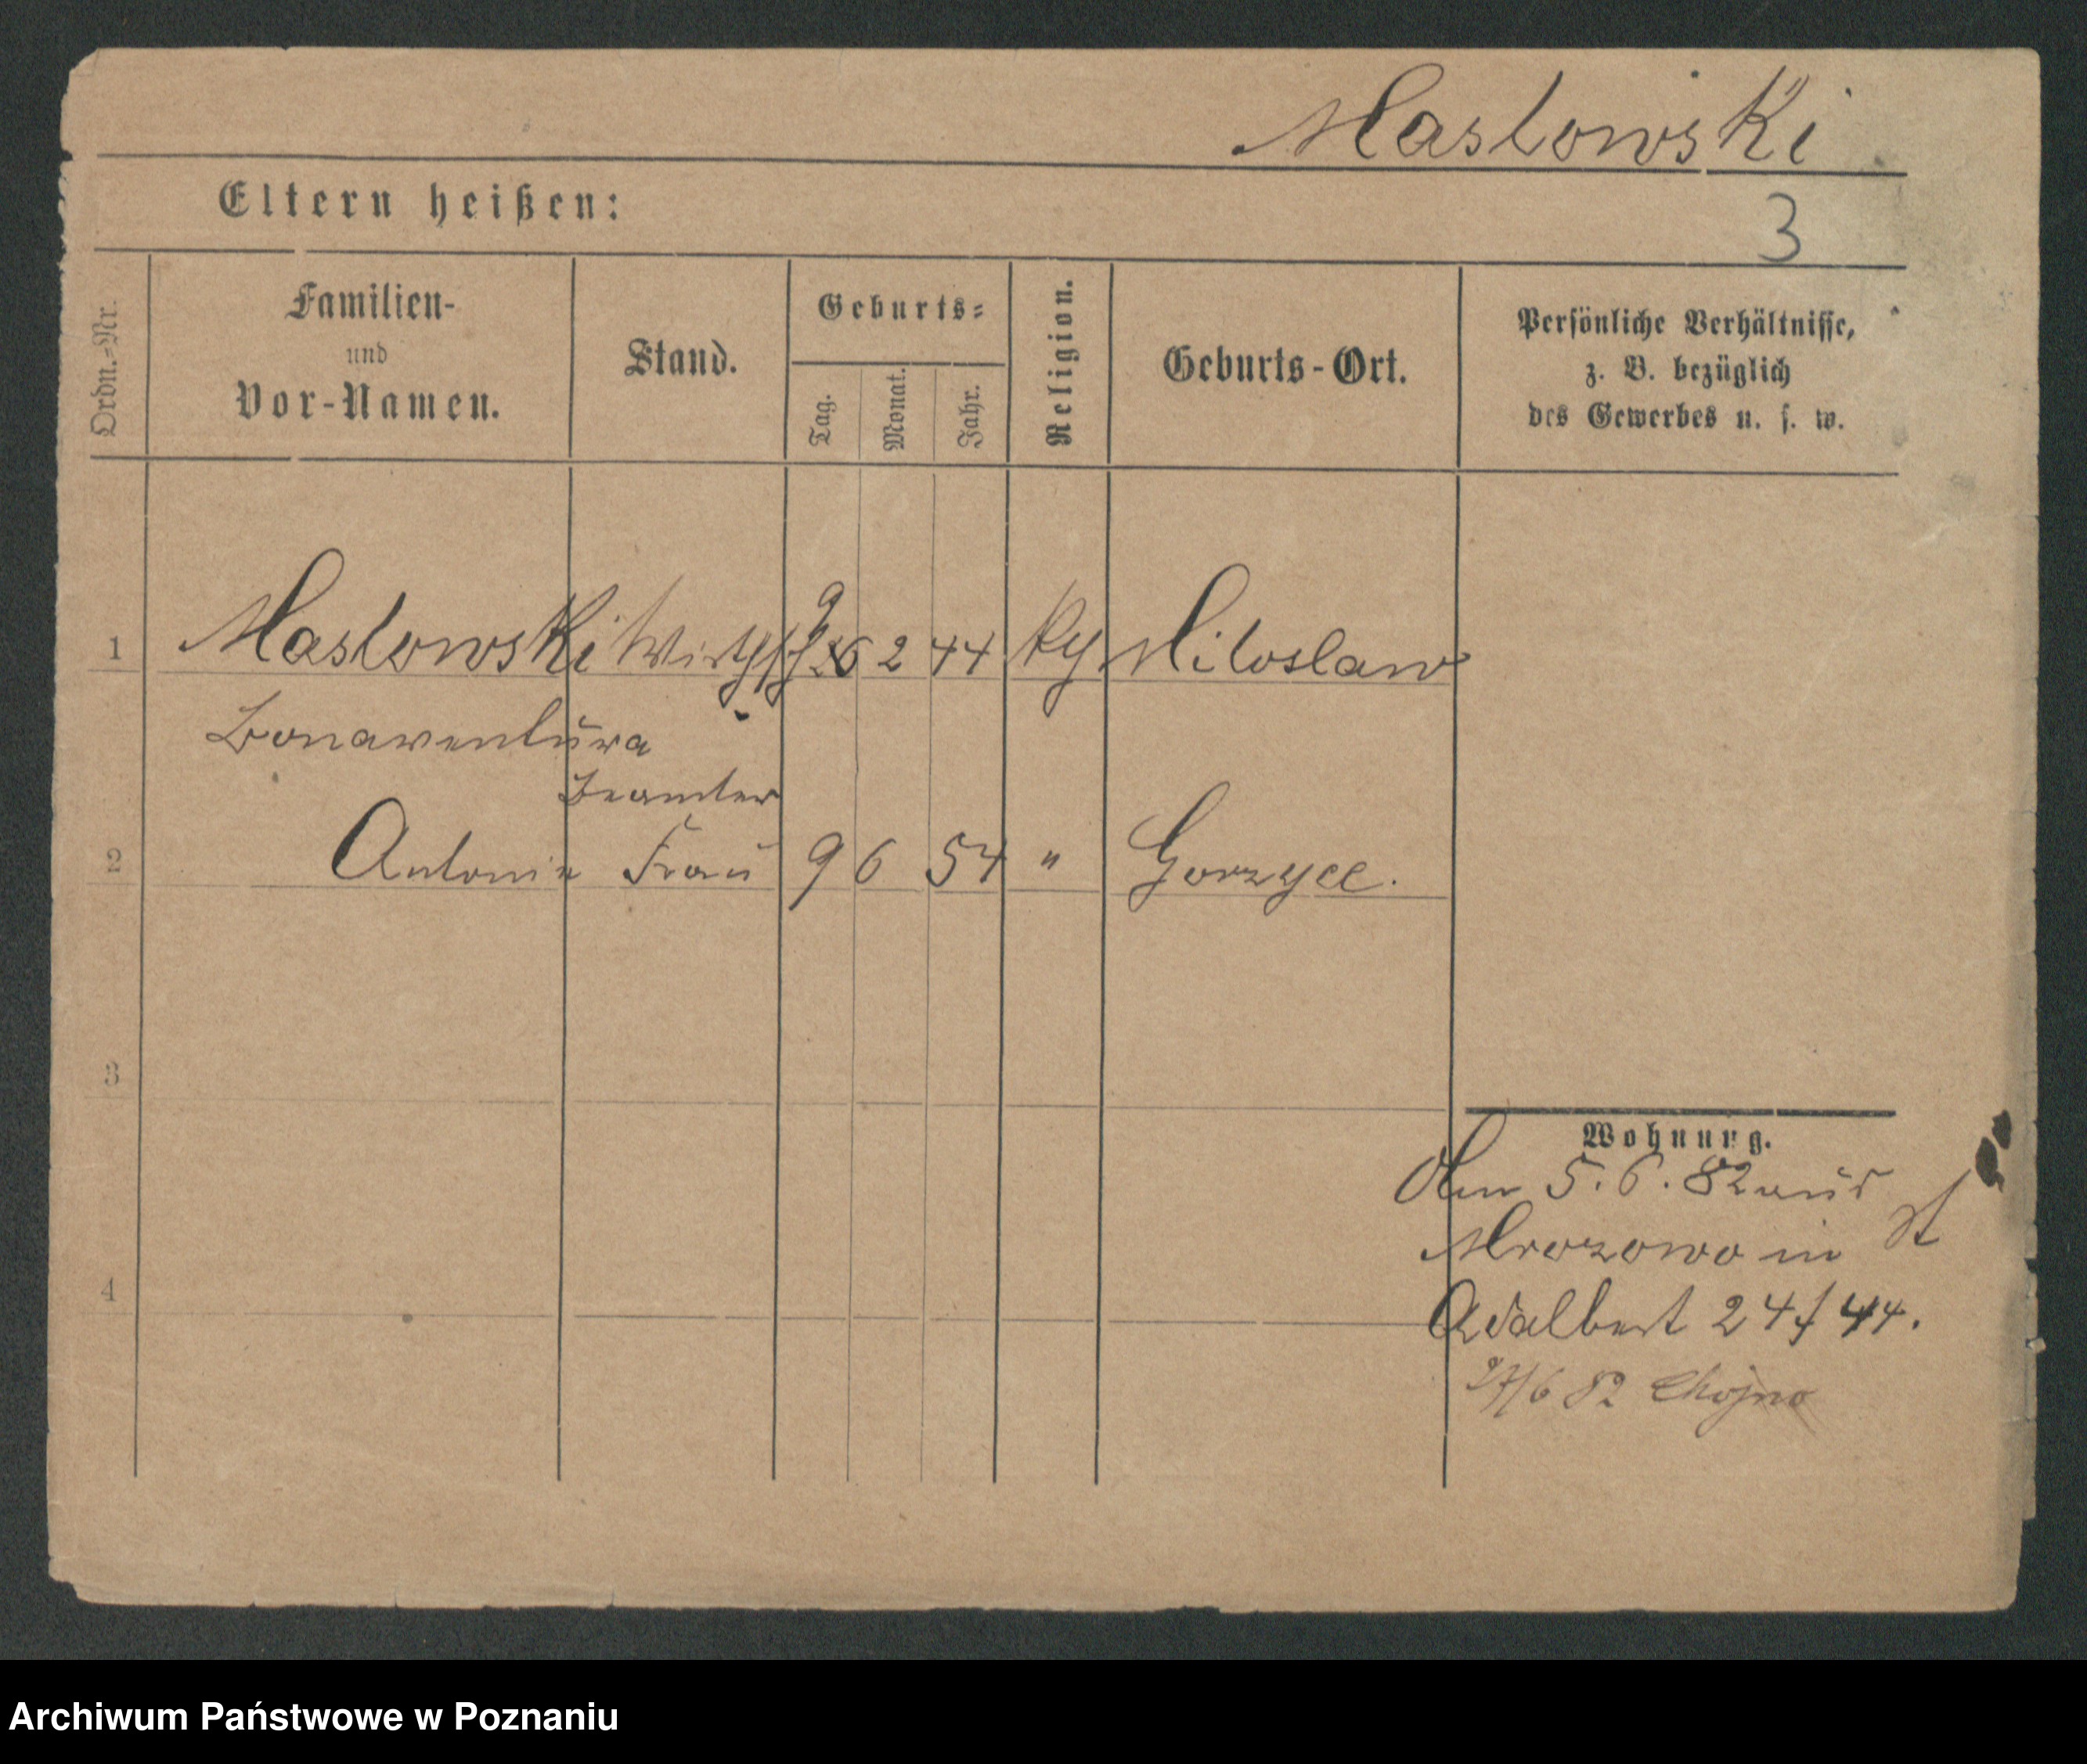 Maslowski
Eltern heißen:
3
Ordn.-Nr.
Familien-
und
Vor-Namen.
Stand.
Geburts-
Tag.
Monat.
Jahr.
Religion.
Geburts-Ort.
Persönliche Verhältnisse,
z. B. bezüglich
des Gewerbes u. s. w.
1 Maslowski 2 44 Miloslaw
Bonaventura
Beamter
2 Antonie Frau 9 6 54 " Gorzyce.
3
Wohnung.
5. 6. 82 aus
Mrozowo in St
4
Adalbert 24/44.
/6 82 Chojno
Archiwum Państwowe w Poznaniu